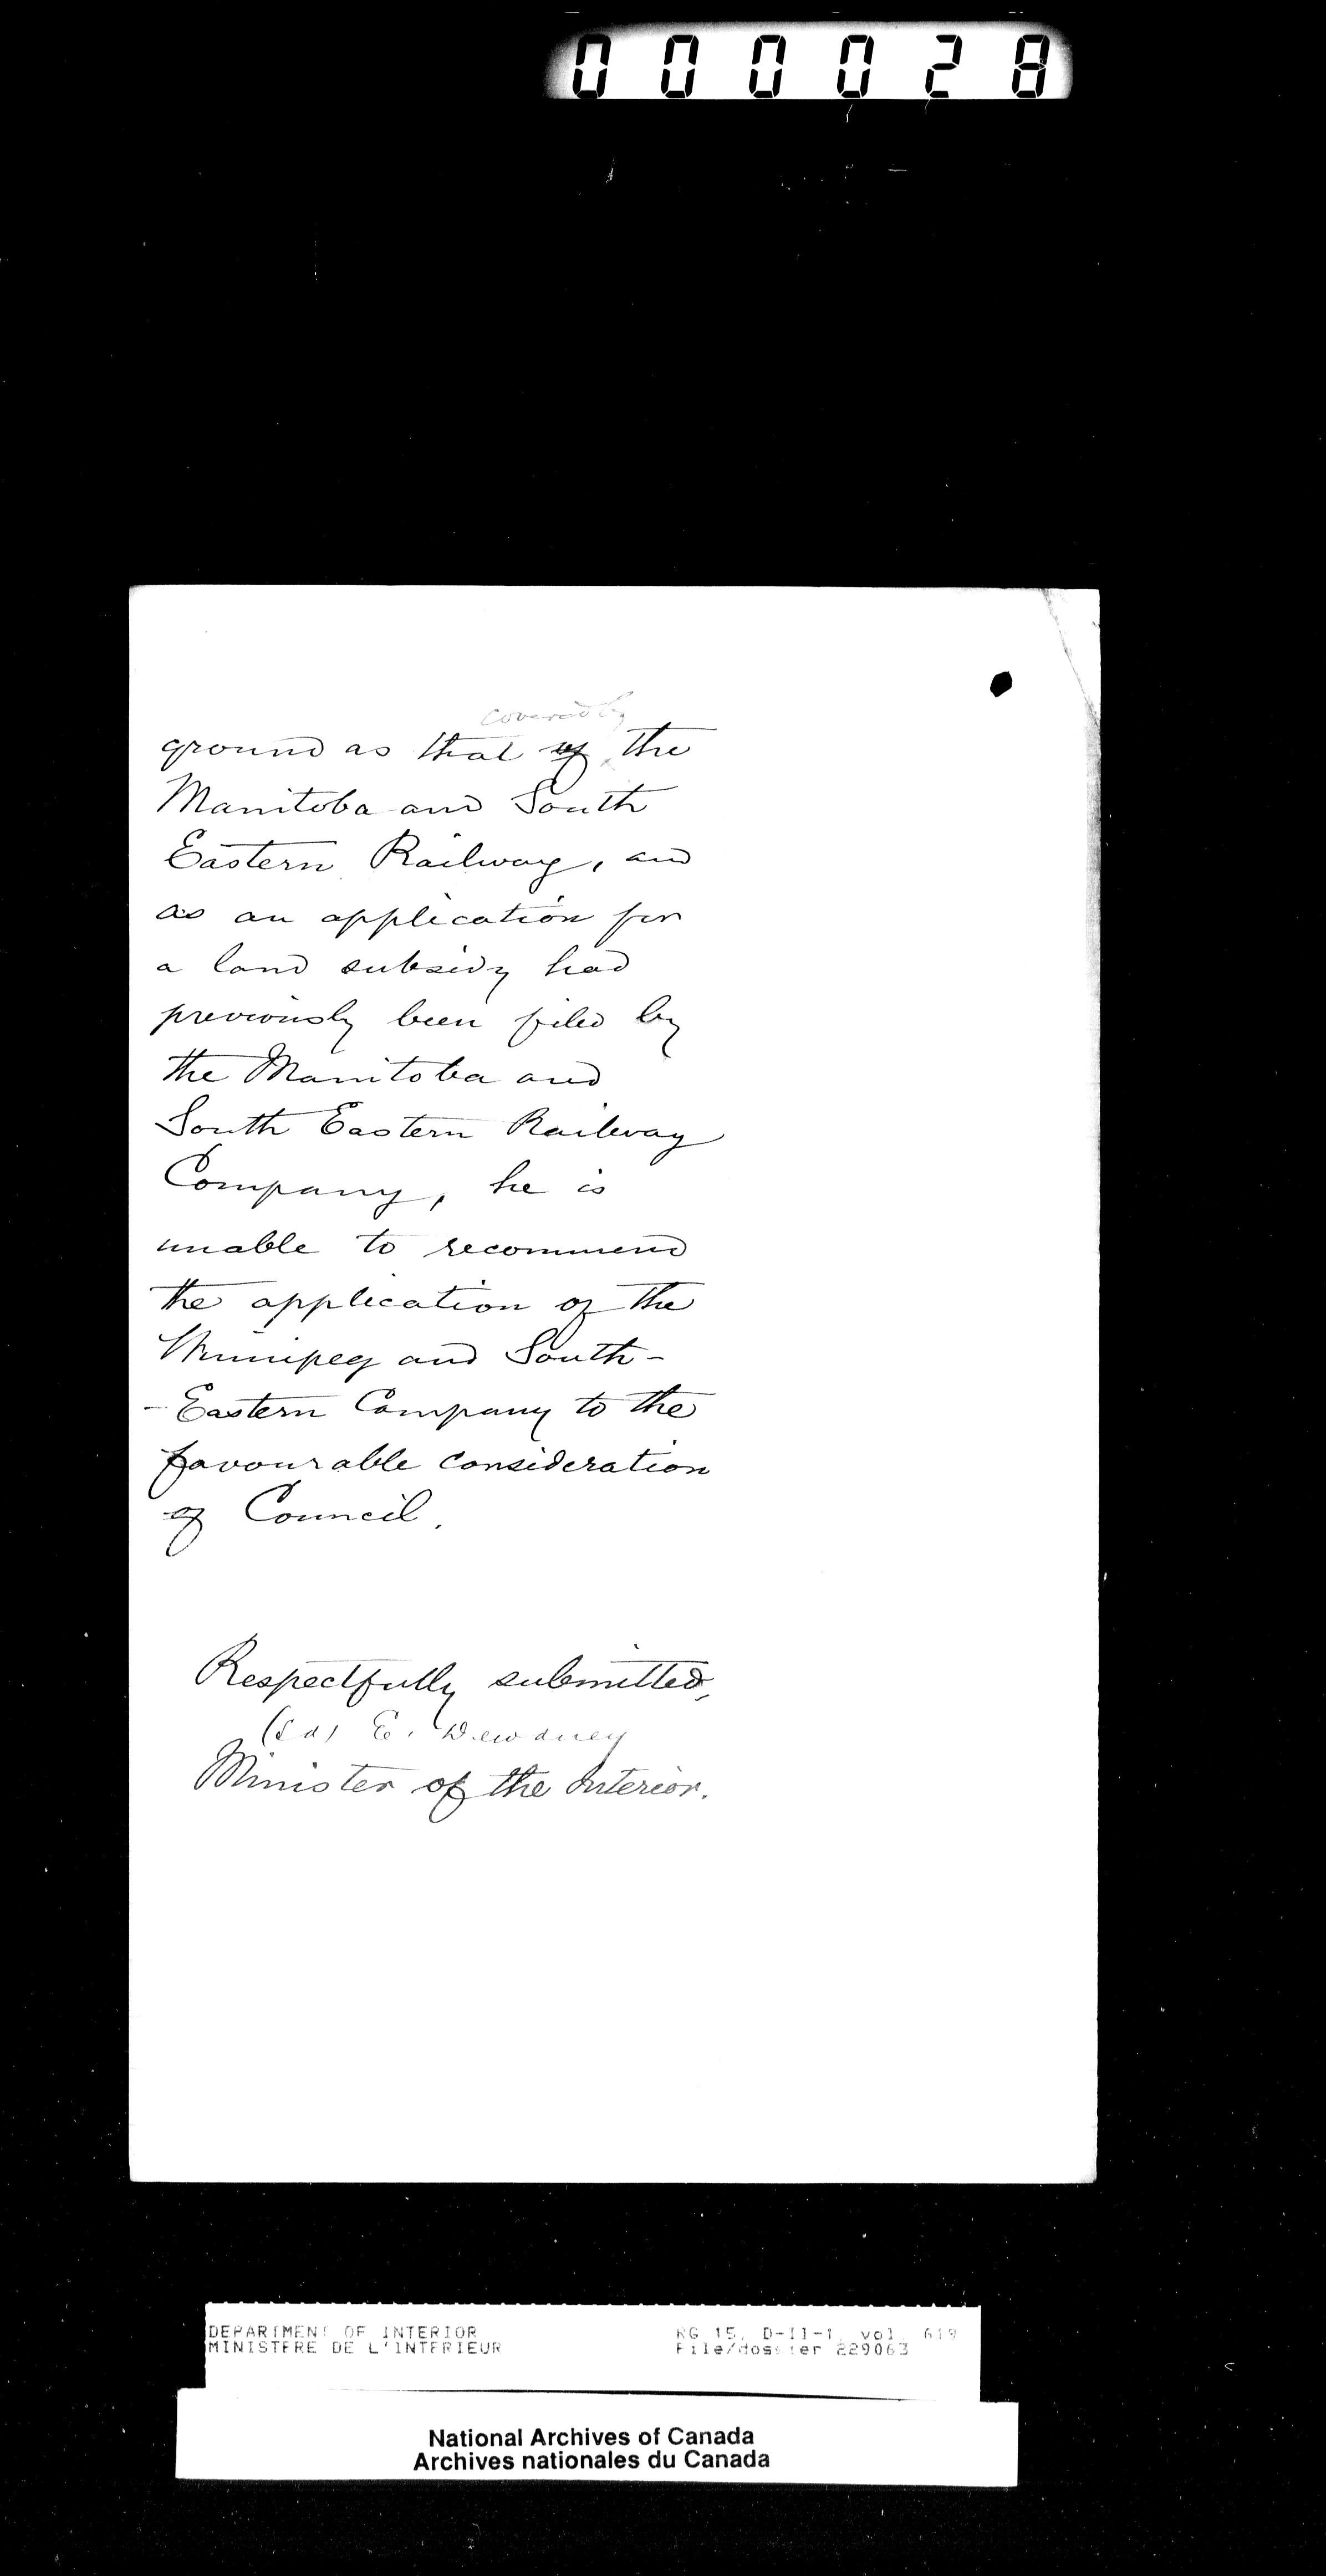 000028
covered by
ground as that of the
Manitoba and South
Eastern Railway, and
as an application for
a land subsidy had
previously been filed by
the Manitoba and
South Eastern Railway
Company, he is
unable to recommend
the application of the
Winnipeg and South-
-Eastern Company to the
favourable consideration
of Council.
Respectfully submitted,
(Sd) E. Dewdney
Minister of the Interior.
DEPARTMENT OF INTERIOR
MINISTERE DE L'INTERIEUR
RG 15, D-II-1, vol. 619
File/dossier 229063
National Archives of Canada
Archives nationales du Canada